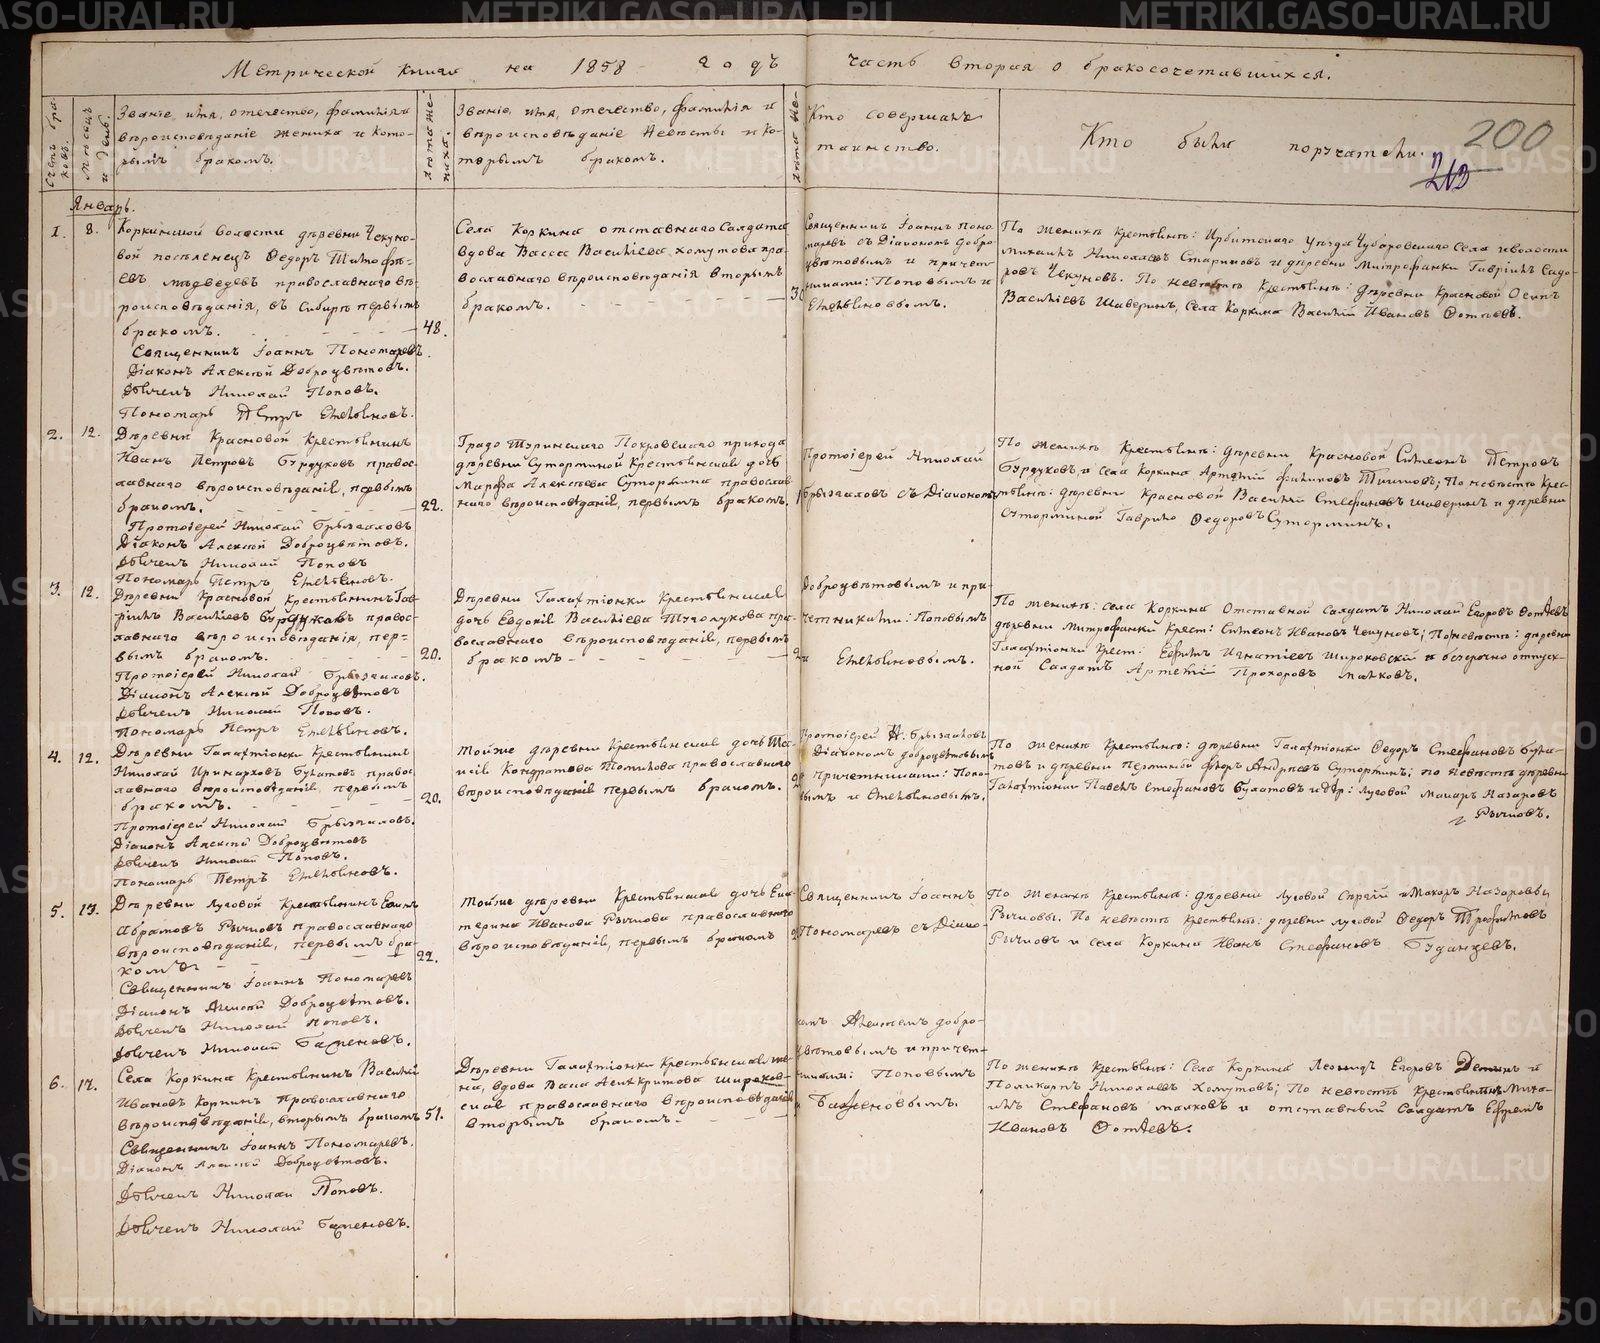 Метрической книги на 1858 годъ часть вторая о бракосочетавшихся.
200
213
Счетъ браковъ.
Мѣсяцъ и день.
Званіе, имя, отечество, фамилія и
вѣроисповѣданіе жениха и кото-
рымъ бракомъ.
Лѣта жениха.
Званіе, имя, отечество, фамилія и
вѣроисповѣданіе невѣсты и ко-
торымъ бракомъ.
Кто совершалъ
таинство.
Кто были поручатели.
Январь.
1. 8.
Коркинской волости деревни Чекуно-
вой поселенецъ Ѳедоръ Тимофѣ-
евъ Медведевъ православнаго вѣ-
роисповѣданія, въ Сибирѣ первымъ
бракомъ. 48.
Священникъ Іоаннъ Пономаревъ.
Діаконъ Алексѣй Доброцвѣтовъ.
Дьячекъ Николай Поповъ.
Пономарь Петръ
Села Коркина отставнаго Солдата
вдова Васса Васильева Хомутова пра-
вославнаго вѣроисповѣданія вторымъ
бракомъ.
Священникъ Іоаннъ Поно-
маревъ съ Діакономъ Добро-
цвѣтовымъ и причет-
никами: Поповымъ и
По женихѣ Крестьяне: Ирбитскаго уѣзда Чубаровскаго Села и волости
Михаилъ Николаевъ Стариковъ и деревни Митрофанки Гаврилъ
Чекуновъ. По невѣстѣ Крестьяне: деревни Красновой Осипъ
Васильевъ Шаверинъ, Села Коркина Василій Ивановъ Фотѣевъ.
2. 12.
Деревни Красновой Крестьянинъ
Иванъ Петровъ Бурдуковъ право-
славнаго вѣроисповѣданія, первымъ
бракомъ. 22.
Протоіерей Николай Брызгаловъ
Діаконъ Алексѣй Доброцвѣтовъ.
Дьячекъ Николай Поповъ
Пономарь Петръ
Градо Туринскаго Покровскаго прихода
деревни Сутормной Крестьянская дочь
Марфа Алексѣева Сутормина православ-
наго вѣроисповѣданія, первымъ бракомъ.
Протоіерей Николай
Брызгаловъ съ Діакономъ
По женихѣ Крестьяне: деревни Красновой Симеонъ Петровъ
Бурдуковъ и села Коркина Артемій; По невѣстѣ Крес-
тьяне: деревни Красновой Василій Стефановъ Шаверинъ и деревни
Суторминой Гаврило Ѳедоровъ Суторминъ.
3. 12.
Деревни Красновой Крестьянинъ Гав-
рилъ Васильевъ Бурдуковъ право-
славнаго вѣроисповѣданія, пер-
вымъ бракомъ. 20.
Протоіерей Николай Брызгаловъ.
Діаконъ Алексѣй Доброцвѣтовъ
Дьячекъ Николай Поповъ.
Пономарь Петръ
Деревни Галактіонки Крестьянская
дочь Евдокія Васильева пра-
вославнаго вѣроисповѣданія, первымъ
бракомъ
Доброцвѣтовымъ и при-
четниками: Поповымъ
и
По женихѣ: села Коркина Отставной Солдатъ Николай Егоровъ Фотѣевъ
деревни Митрофанки Крест: Симеонъ Ивановъ Чекуновъ; По невѣстѣ: деревни
Галактіонки Крест: Ефимъ Игнатіевъ Широковскій и безсрочно отпуск-
ной Солдатъ Артемій Прохоровъ Малковъ.
4. 12.
Деревни Галактіонки Крестьянинъ
Николай Иринарховъ Булатовъ право-
славнаго вѣроисповѣданія, первымъ
бракомъ. 20.
Протоіерей Николай Брызгаловъ.
Діаконъ Алексѣй Доброцвѣтовъ
Дьячекъ Николай Поповъ.
Пономарь Петръ
Тойже деревни Крестьянская дочь
Кондратова православнаго
вѣроисповѣданія первымъ бракомъ.
Протоіерей Н. Брызгаловъ
Діакономъ Доброцвѣтовымъ
причетниками: Попо-
вымъ и
По женихѣ Крестьяне: деревни Галактіонки Ѳедоръ Стефановъ Була-
товъ и деревни Андреевъ Суторминъ; по невѣстѣ деревни
Галактіонки Павелъ Стефановъ Булатовъ и др: Луговой Макаръ Назаровъ
Рычковъ.
5. 13.
Деревни Луговой Крестьянинъ
Абрамовъ Рычковъ православнаго
вѣроисповѣданія, первымъ бра-
комъ 22.
Священникъ Іоаннъ Пономаревъ
Діаконъ Алексѣй Доброцвѣтовъ.
Дьячекъ Николай Поповъ.
Дьячекъ Николай Баженовъ.
Тойже деревни Крестьянская дочь Ека-
терина Иванова Рычкова православнаго
вѣроисповѣданія, первымъ бракомъ
Священникъ Іоаннъ
Пономаревъ съ Діако-
По женихѣ Крестьяне: деревни Луговой Сергій и Макаръ Назаровы
Рычковы. По невѣстѣ Крестьяне: деревни Луговой Ѳедоръ Трофимовъ
Рычковъ и села Коркина Иванъ Стефановъ Буданцевъ.
6. 17.
Села Коркина Крестьянинъ Василій
Ивановъ Коркинъ православнаго
вѣроисповѣданія, вторымъ бракомъ 51.
Священникъ Іоаннъ Пономаревъ.
Діаконъ Алексѣй Доброцвѣтовъ.
Дьячекъ Николай Поповъ.
Дьячекъ Николай Баженовъ.
Деревни Галактіонки Крестьянская же-
на, вдова Васса Асинкритова Широков-
ская православнаго вѣроисповѣданія
вторымъ бракомъ.
номъ Алексѣемъ Добро-
цвѣтовымъ и причет-
никами: Поповымъ
и Баженовымъ.
По женихѣ Крестьяне: Села Коркина Леонидъ Егоровъ и
Поликарпъ Николаевъ Хомутовъ; По невѣстѣ Крестьянинъ Миха-
илъ Стефановъ Малковъ и отставный Солдатъ Ефремъ
Ивановъ Фотѣевъ.
METRIKI.GASO-URAL.RU